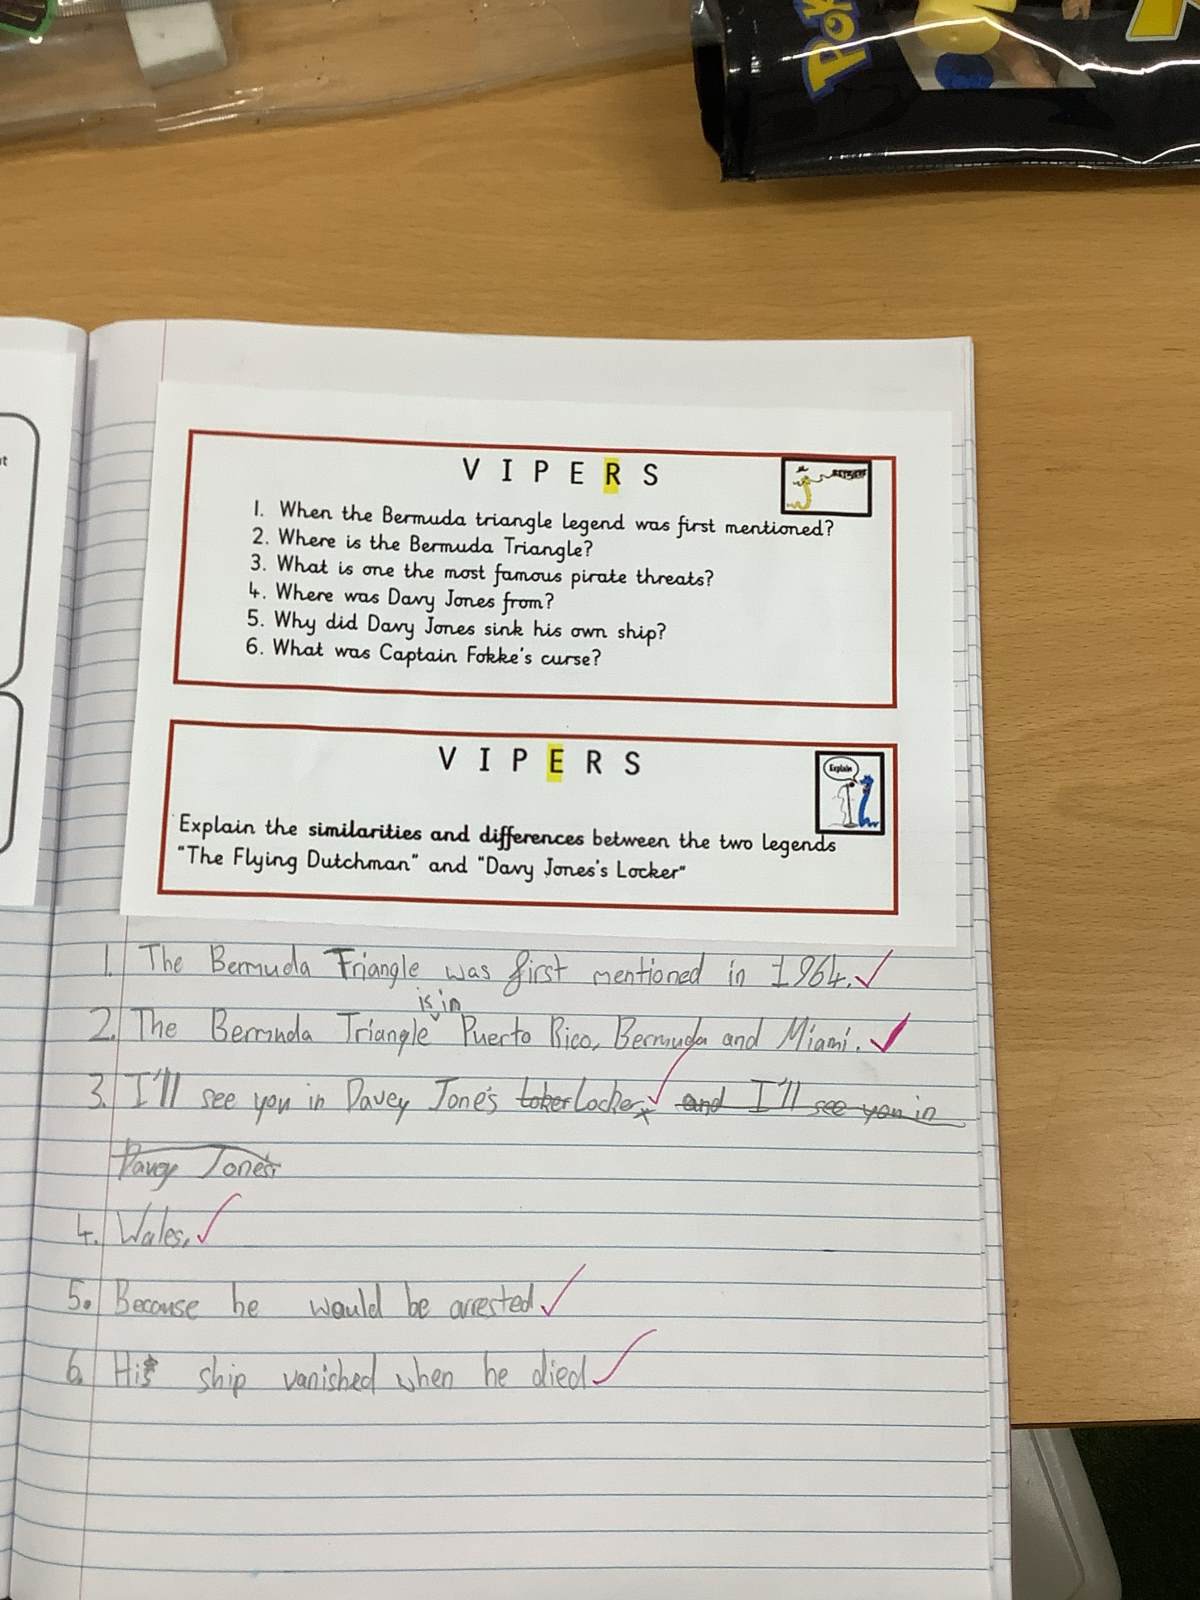 POK
t
V I P E R S
RETRIEVE
1. When the Bermuda triangle legend was first mentioned?
2. Where is the Bermuda Triangle?
3. What is one the most famous pirate threats?
4. Where was Davy Jones from?
5. Why did Davy Jones sink his own ship?
6. What was Captain Fokke's curse?
V I P E R S
Explain
Explain the similarities and differences between the two legends
"The Flying Dutchman" and "Davy Jones's Locker"
1. The Bermuda Triangle was first mentioned in 1964.
is in
2. The Bermuda Triangle Puerto Rico, Bermuda and Miami.
3. I'll see you in Davey Jone's loker Locker. and I'll see you in
Davey Jone's
4. Wales.
5. Because he would be arrested
6. His ship vanished when he died